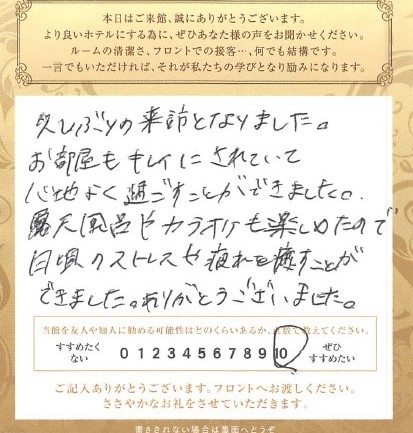 本日はご来館、誠にありがとうございます。
より良いホテルにする為に、ぜひあなた様の声をお聞かせください。
ルームの清潔さ、フロントでの接客…、何でも結構です。
一言でもいただければ、それが私たちの学びとなり励みになります。
久しぶりの来訪となりました。
お部屋もキレイにされていて
心地よく過ごすことができました。
露天風呂やカラオケも楽しめたので
日頃のストレスや疲れを癒すことが
できました。ありがとうございました。
当館を友人や知人に勧める可能性はどのくらいあるか、点数で教えてください。
すすめたくない 0 1 2 3 4 5 6 7 8 9 10 ぜひすすめたい
ご記入ありがとうございます。フロントへお渡しください。
ささやかなお礼をさせていただきます。
書ききれない場合は裏面へどうぞ